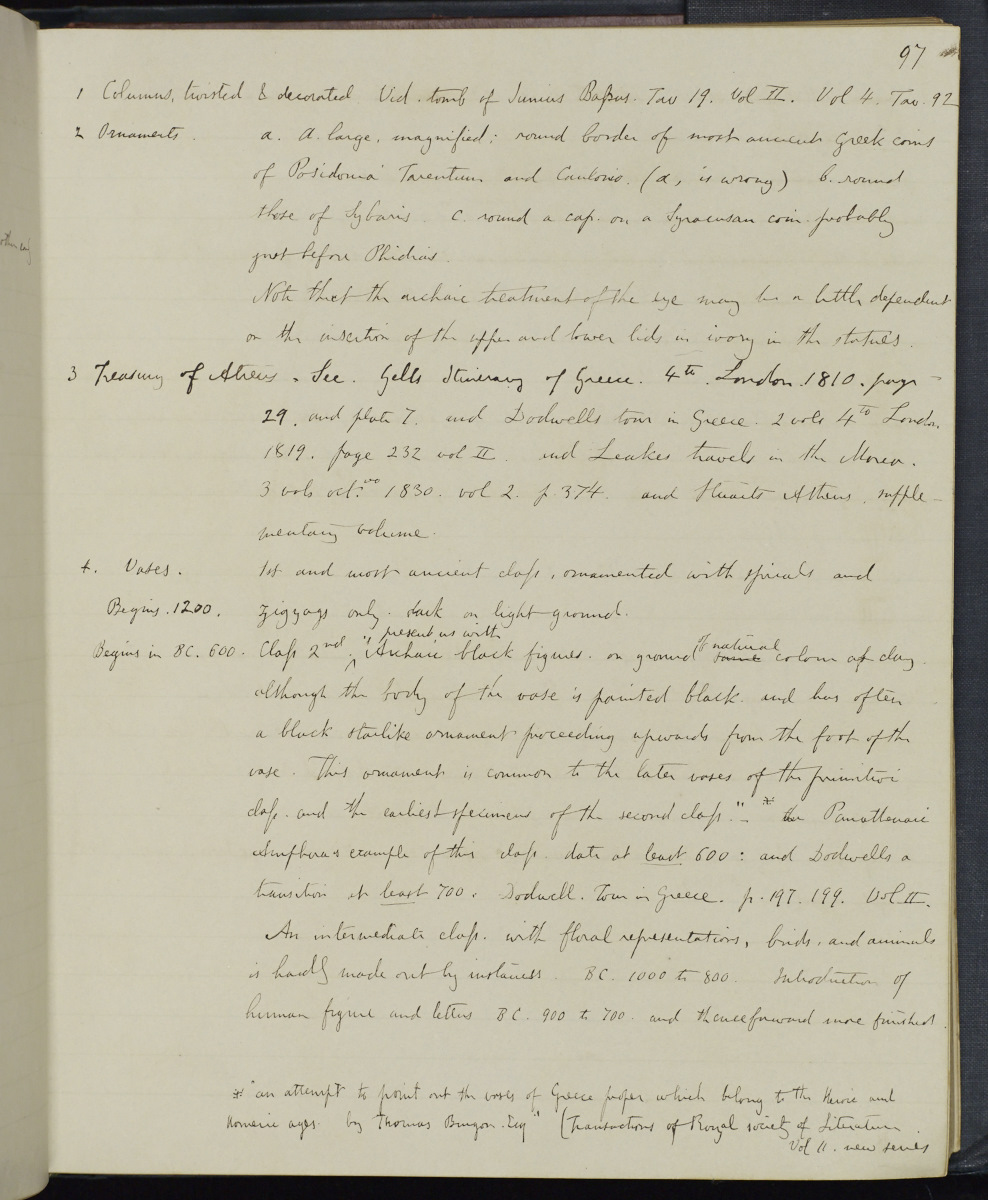 97
1 Columns, twisted & decorated Vid. tomb of Junius Baſsus. Tav 19. Vol II. Vol 4. Tav. 92
2 Ornaments. a. A. large, magnified; round border of most ancient Greek coins
of Posidonia Tarentum and Caulonia. (a, is wrong) b. round
those of Sybaris. c. round a cap. on a Syracusan coin. probably
just before Phidias.
Note that the archaic treatment of the eye may be a little dependent
on the insertion of the upper and lower lids in ivory in the statues.
3 Treasury of Atreus. See. Gells Itinerary of Greece. 4to. London. 1810. page
29. and plate 7. and Dodwells tour in Greece. 2 vols 4to London.
1819. page 232 vol II. and Leakes travels in the Morea.
3 vols octvo 1830. vol 2. p. 374. and Stuarts Athens, supple-
mentary volume.
4. Vases. 1st and most ancient claſs, ornamented with spirals and
Begins. 1200. zigzags only. dark on light ground.
Begins in BC. 600. Claſs 2nd. "present us with Archaic black figures. on ground of natural colour of clay.
although the body of the vase is painted black. and has often
a black starlike ornament proceeding upwards from the foot of the
vase. This ornament is common to the later vases of the primitive
claſs. and the earliest specimens of the second claſs." * Panattenaic
Amphora example of this claſs. date at least 600: and Dodwells a
transition at least 700. Dodwell. Tour in Greece. p. 197. 199. Vol II.
An intermediate claſs. with floral representations, birds, and animals
is hardly made out by instances. BC. 1000 to 800. Introduction of
human figure and letters BC. 900 to 700. and thenceforward more finished.
* "an attempt to point out the vases of Greece proper which belong to the Heroic and
Homeric ages. by Thomas Burgon. Esq" (Transactions of Royal society of Literature.
Vol II. new series